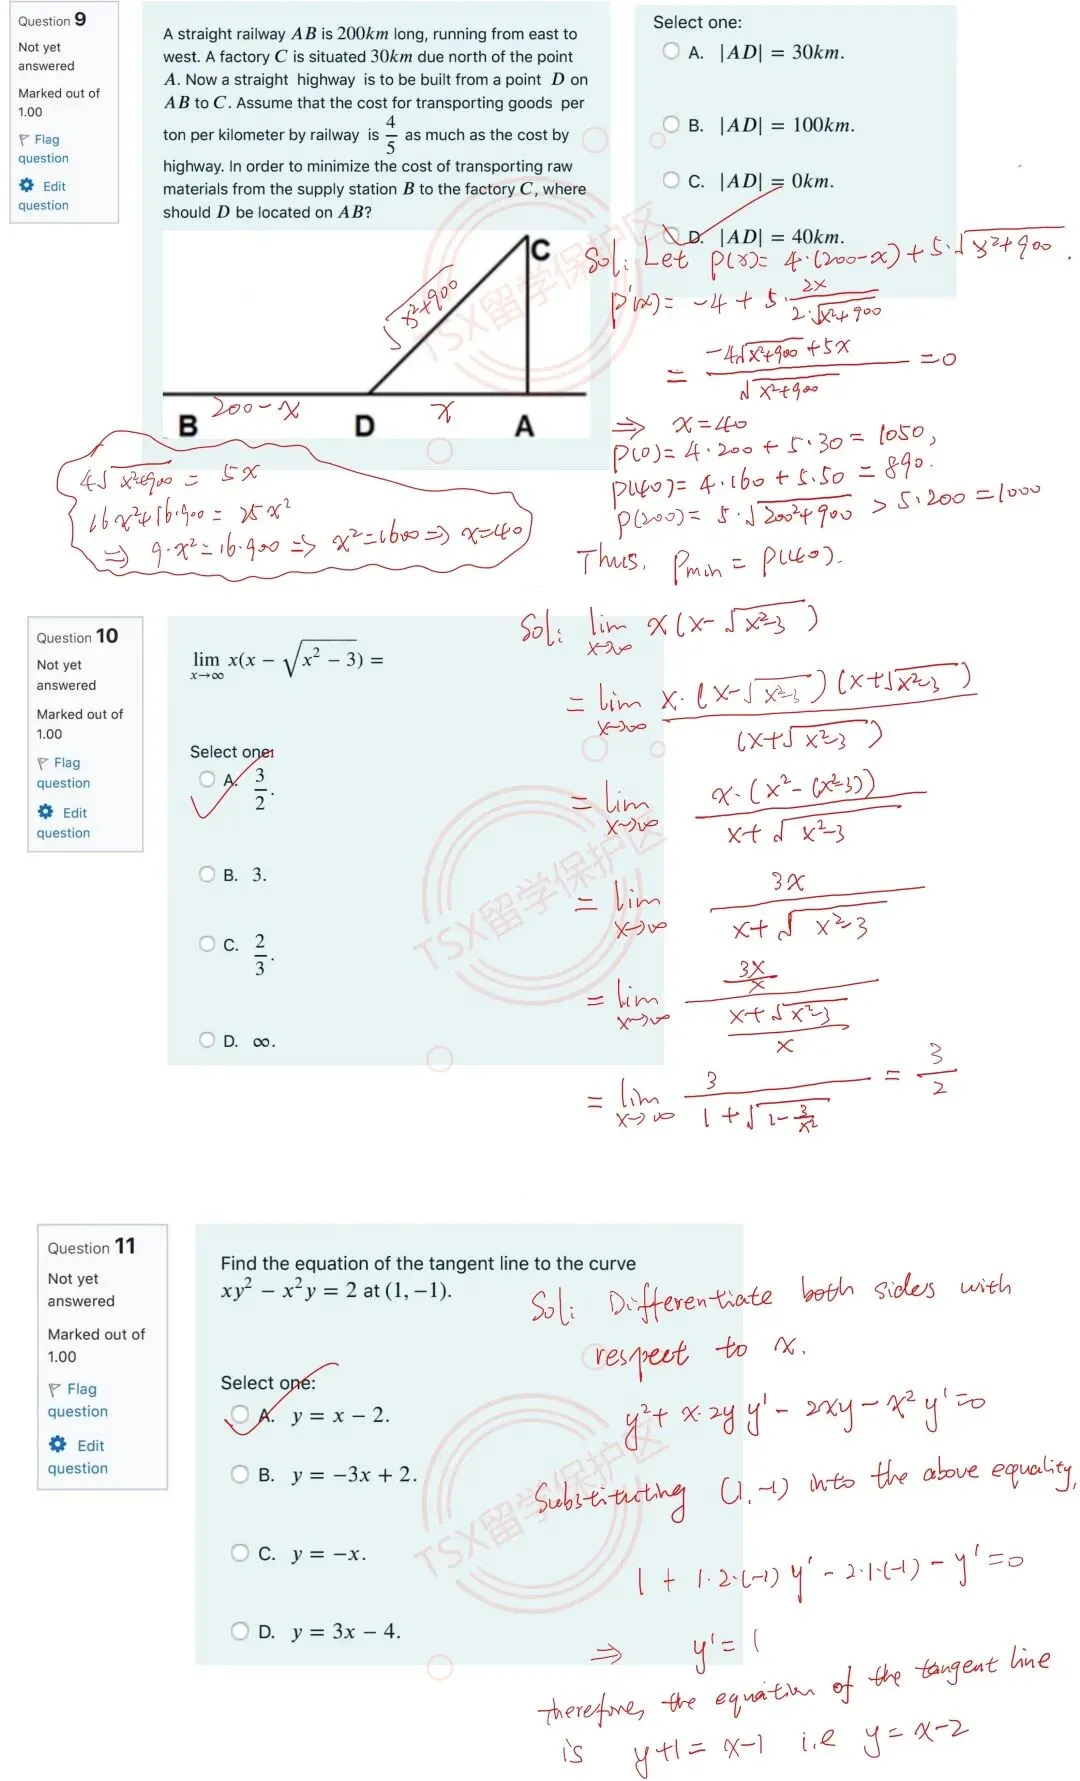 Question 9
Not yet
answered
Marked out of
1.00
Flag
question
Edit
question
A straight railway AB is 200km long, running from east to
west. A factory C is situated 30km due north of the point
A. Now a straight highway is to be built from a point D on
AB to C. Assume that the cost for transporting goods per
ton per kilometer by railway is 4/5 as much as the cost by
highway. In order to minimize the cost of transporting raw
materials from the supply station B to the factory C, where
should D be located on AB?
C
√x²+900
200-x
x
B D A
4√x²+900 = 5x
16x²+16·900 = 25x²
⇒ 9·x²=16·900 ⇒ x²=1600 ⇒ x=40
Select one:
A. |AD| = 30km.
B. |AD| = 100km.
C. |AD| = 0km.
D. |AD| = 40km.
Sol: Let p(x)= 4·(200-x)+5·√x²+900.
p'(x)= -4 + 5· 2x / 2·√x²+900
= -4√x²+900 +5x / √x²+900 =0
⇒ x=40
p(0)= 4·200 + 5·30 = 1050,
p(40)= 4·160 + 5·50 = 890.
p(200)= 5·√200²+900 > 5·200 =1000
Thus, Pmin = p(40).
Question 10
Not yet
answered
Marked out of
1.00
Flag
question
Edit
question
lim x→∞ x(x − √x² − 3) =
Select one:
A. 3/2.
B. 3.
C. 2/3.
D. ∞.
Sol: lim x→∞ x(x-√x²-3)
= lim x→∞ x·(x-√x²-3)(x+√x²-3) / (x+√x²-3)
= lim x→∞ x·(x²-(x²-3)) / x+√x²-3
= lim x→∞ 3x / x+√x²-3
= lim x→∞ 3x/x / x+√x²-3/x
= lim x→∞ 3 / 1+√1-3/x² = 3/2
Question 11
Not yet
answered
Marked out of
1.00
Flag
question
Edit
question
Find the equation of the tangent line to the curve
xy² − x²y = 2 at (1, −1).
Select one:
A. y = x − 2.
B. y = −3x + 2.
C. y = −x.
D. y = 3x − 4.
Sol: Differentiate both sides with
respect to x.
y²+ x·2y y' - 2xy - x² y'=0
Substituting (1,-1) into the above equality,
1 + 1·2·(-1) y' - 2·1·(-1) - y'=0
⇒ y'= 1
therefore, the equation of the tangent line
is y+1= x-1 i.e y=x-2
TSX留学保护区
TSX留学保护区
TSX留学保护区